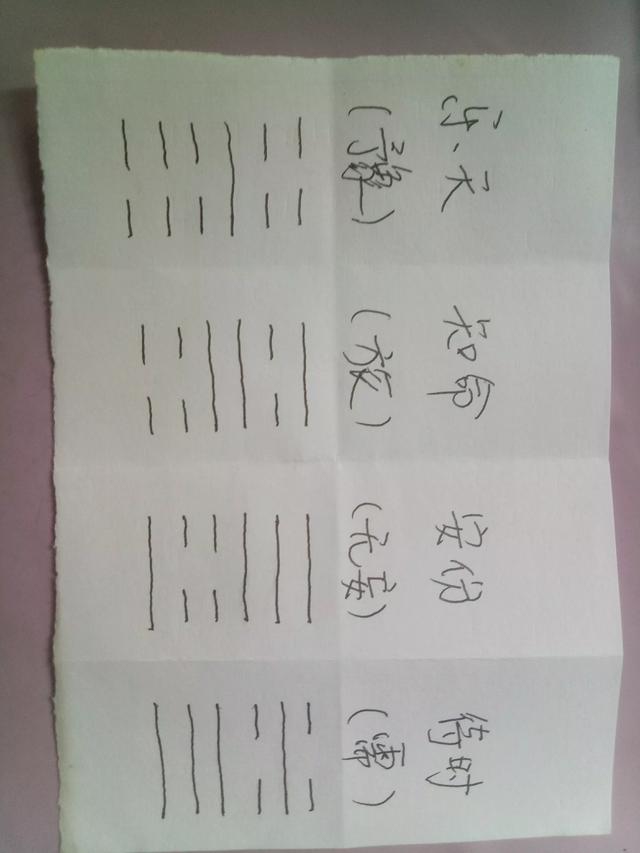 乐天 知命 安份 待时
(豫) (旅) (无妄) (需)